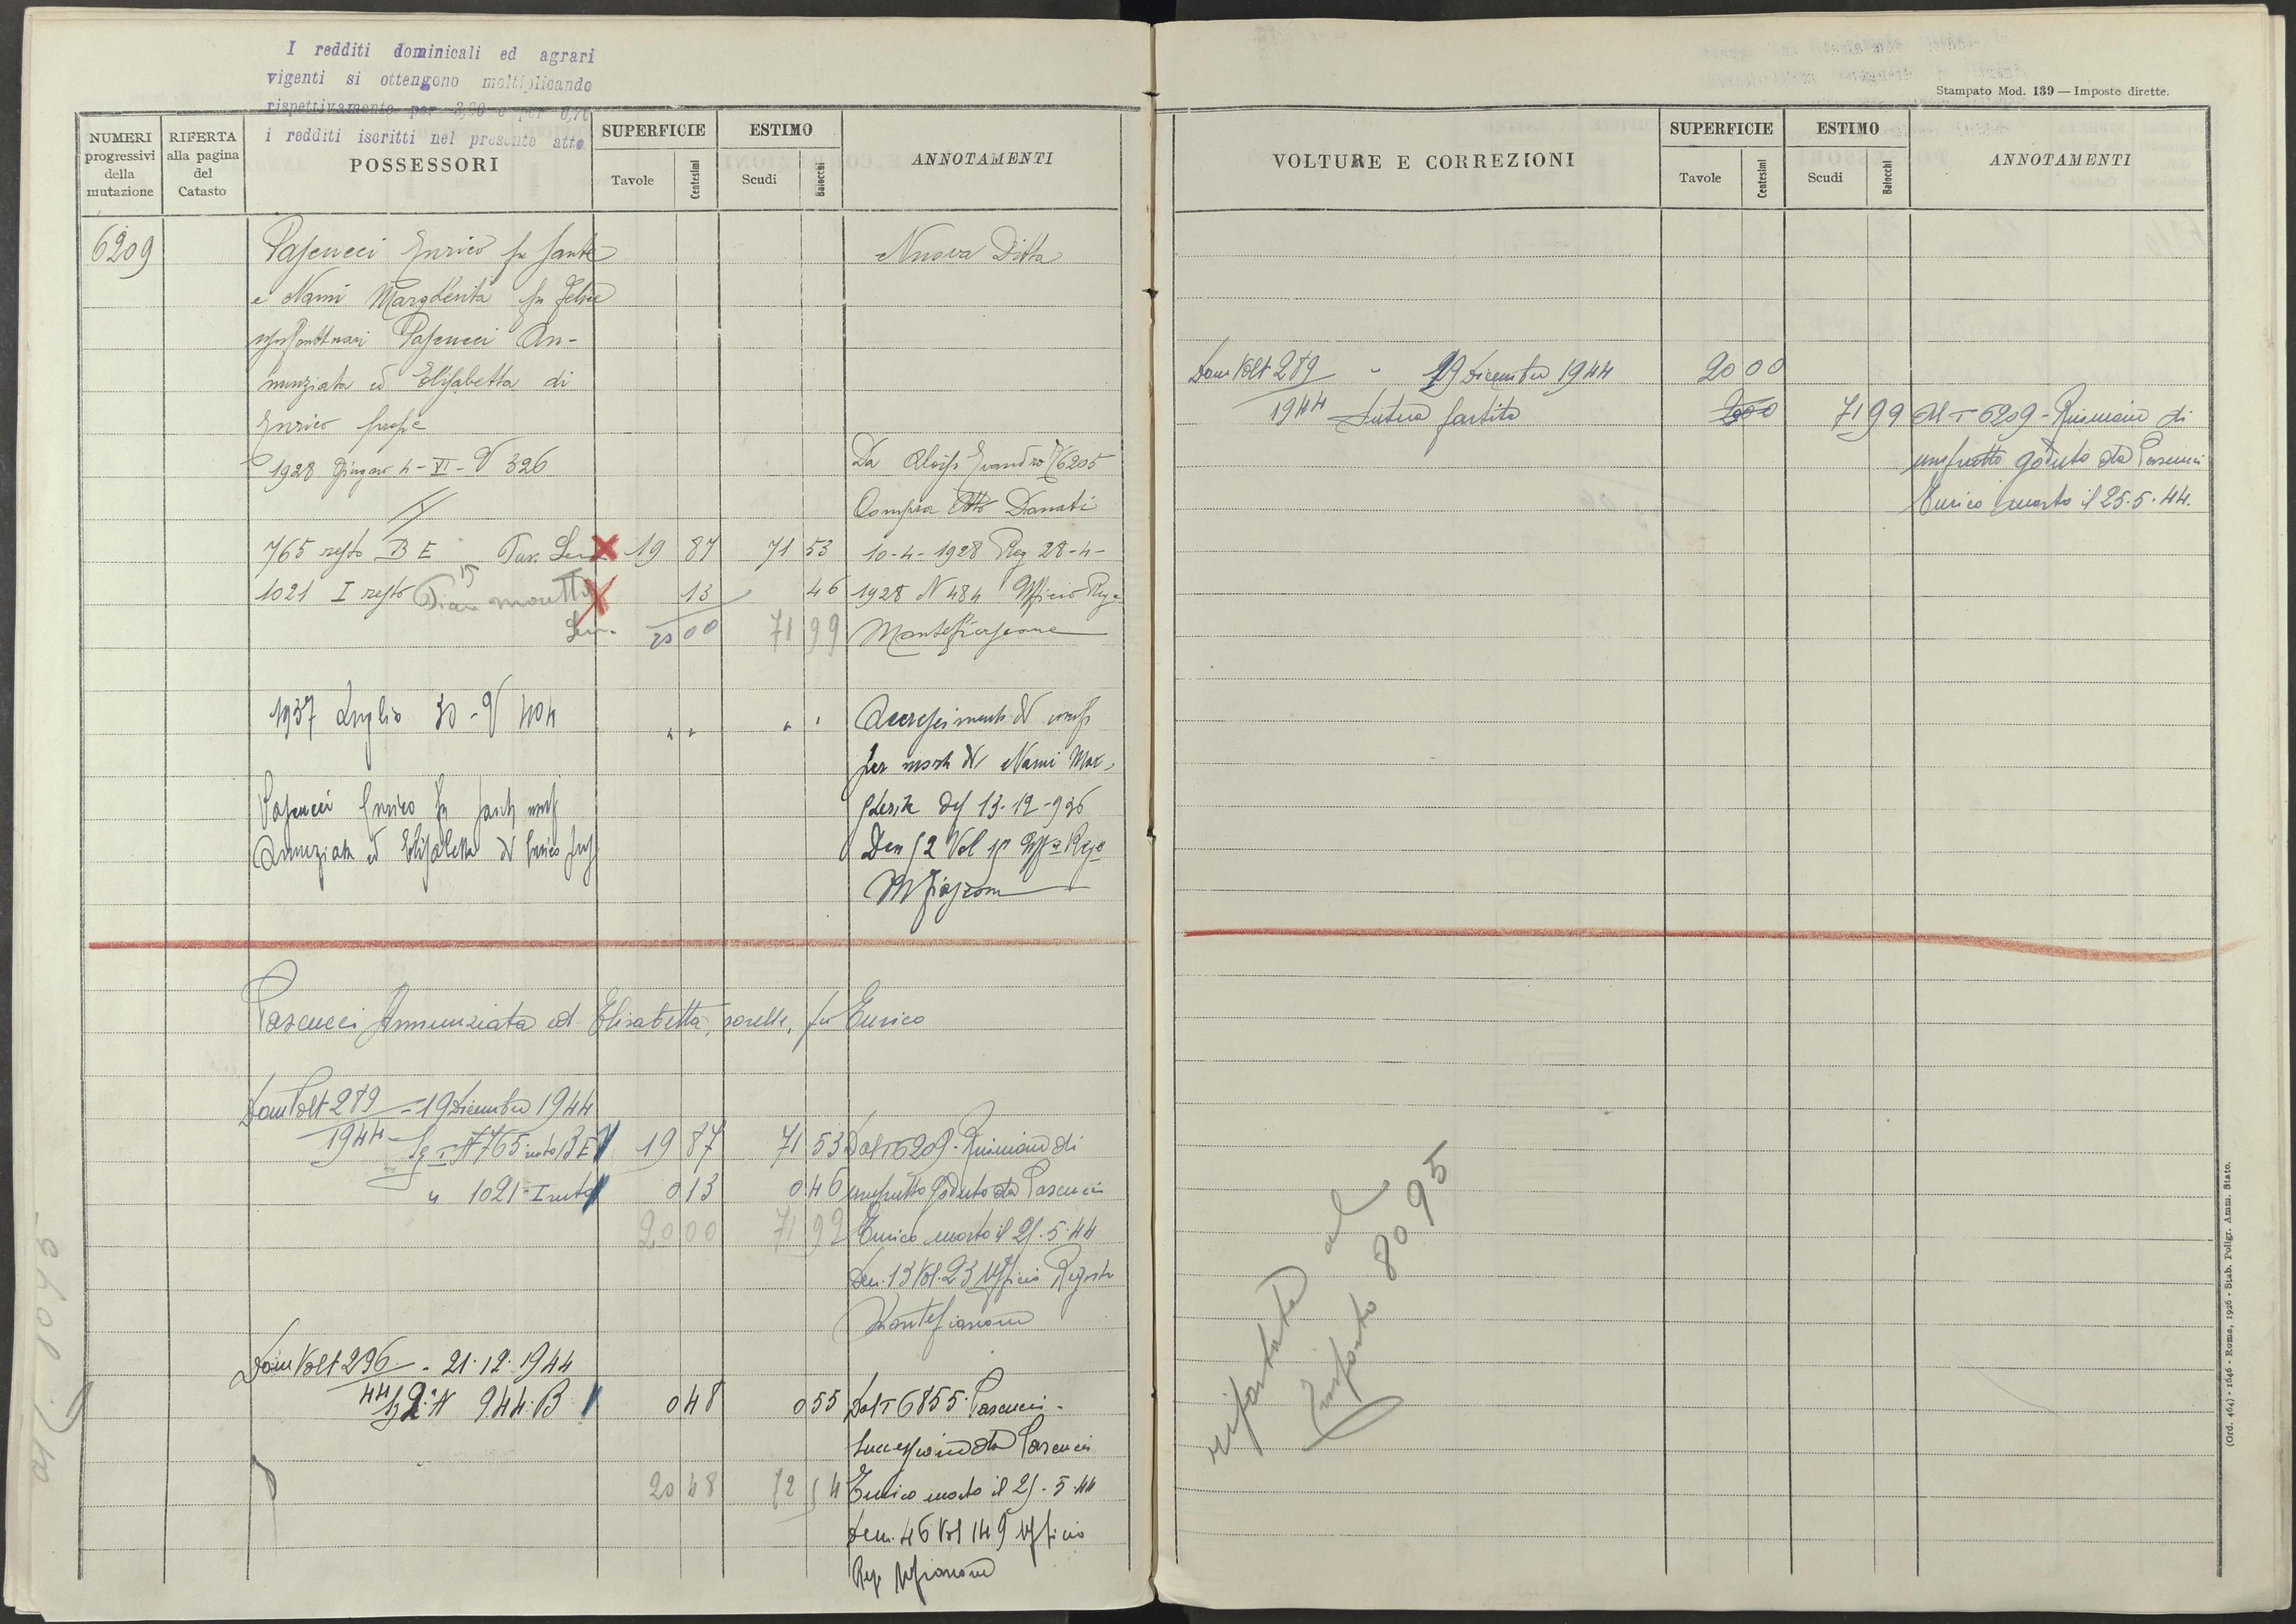 I redditi dominicali ed agrari
vigenti si ottengono moltiplicando
rispettivamente per 3,20 e per 0,70
i redditi iscritti nel presente atto
NUMERI
progressivi
della
mutazione
RIFERTA
alla pagina
del
Catasto
POSSESSORI
SUPERFICIE
Tavole
Centesimi
ESTIMO
Scudi
Baiocchi
ANNOTAMENTI
6209
Pascucci Enrico fu Sante
Nuova Ditta
e Nami Margherita fu Felice
usufruttuari Pascucci An-
nunziata ed Elisabetta di
Enrico prope
1928 Giugno 4 - VI - V 326
Da Aloisi Evandro 6205
Compra Atto Donati
765 resto B E 19 87 71 53 10-4-1928 Reg 28-4-
1021 I resto 13 46 1928 N 484 Ufficio Reg
20 00 71 99 Montefiascone
1937 Luglio 30 - V 404
" " " "
Accrescimento di usuf
per morte di Nami Mar-
gherita del 13-12-936
Pascucci Enrico fu Sante usuf
Annunziata ed Elisabetta di Enrico prop
Den 52 Vol Uff Reg
Mfiascone
Pascucci Annunziata ed Elisabetta, sorelle, fu Enrico
Dom Volt 289 - 19 Dicembre 1944
1944 765 resto B E 19 87 71 53 Dal T 6209 - Riunione di
" 1021 - I resto 0 13 0 46 usufrutto goduto da Pascucci
20 00 71 99 Enrico morto il 25.5.44
Den. 13 Vol. 23 Ufficio Registro
Montefiascone
Dom Volt 296 - 21.12.1944
44 944. B 0 48 0 55 Dal T 6855 Pascucci -
Successione da Pascucci
20 48 72 54 Enrico morto il 25.5.44
Den. 46 Vol 149 Ufficio
Reg. Mfiascone
8095
Stampato Mod. 139 — Imposte dirette.
VOLTURE E CORREZIONI
SUPERFICIE
Tavole
Centesimi
ESTIMO
Scudi
Baiocchi
ANNOTAMENTI
Dom Volt 289 - 19 Dicembre 1944 20 00
1944 Intera partita 2000 71 99 Al T 6209 - Riunione di
usufrutto goduto da Pascucci
Enrico morto il 25.5.44.
riportata al
8095
(Ord. 464) - 1646 - Roma, 1926 - Stab. Poligr. Amm. Stato.